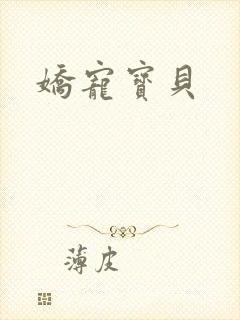 嬌寵寶貝
薄皮